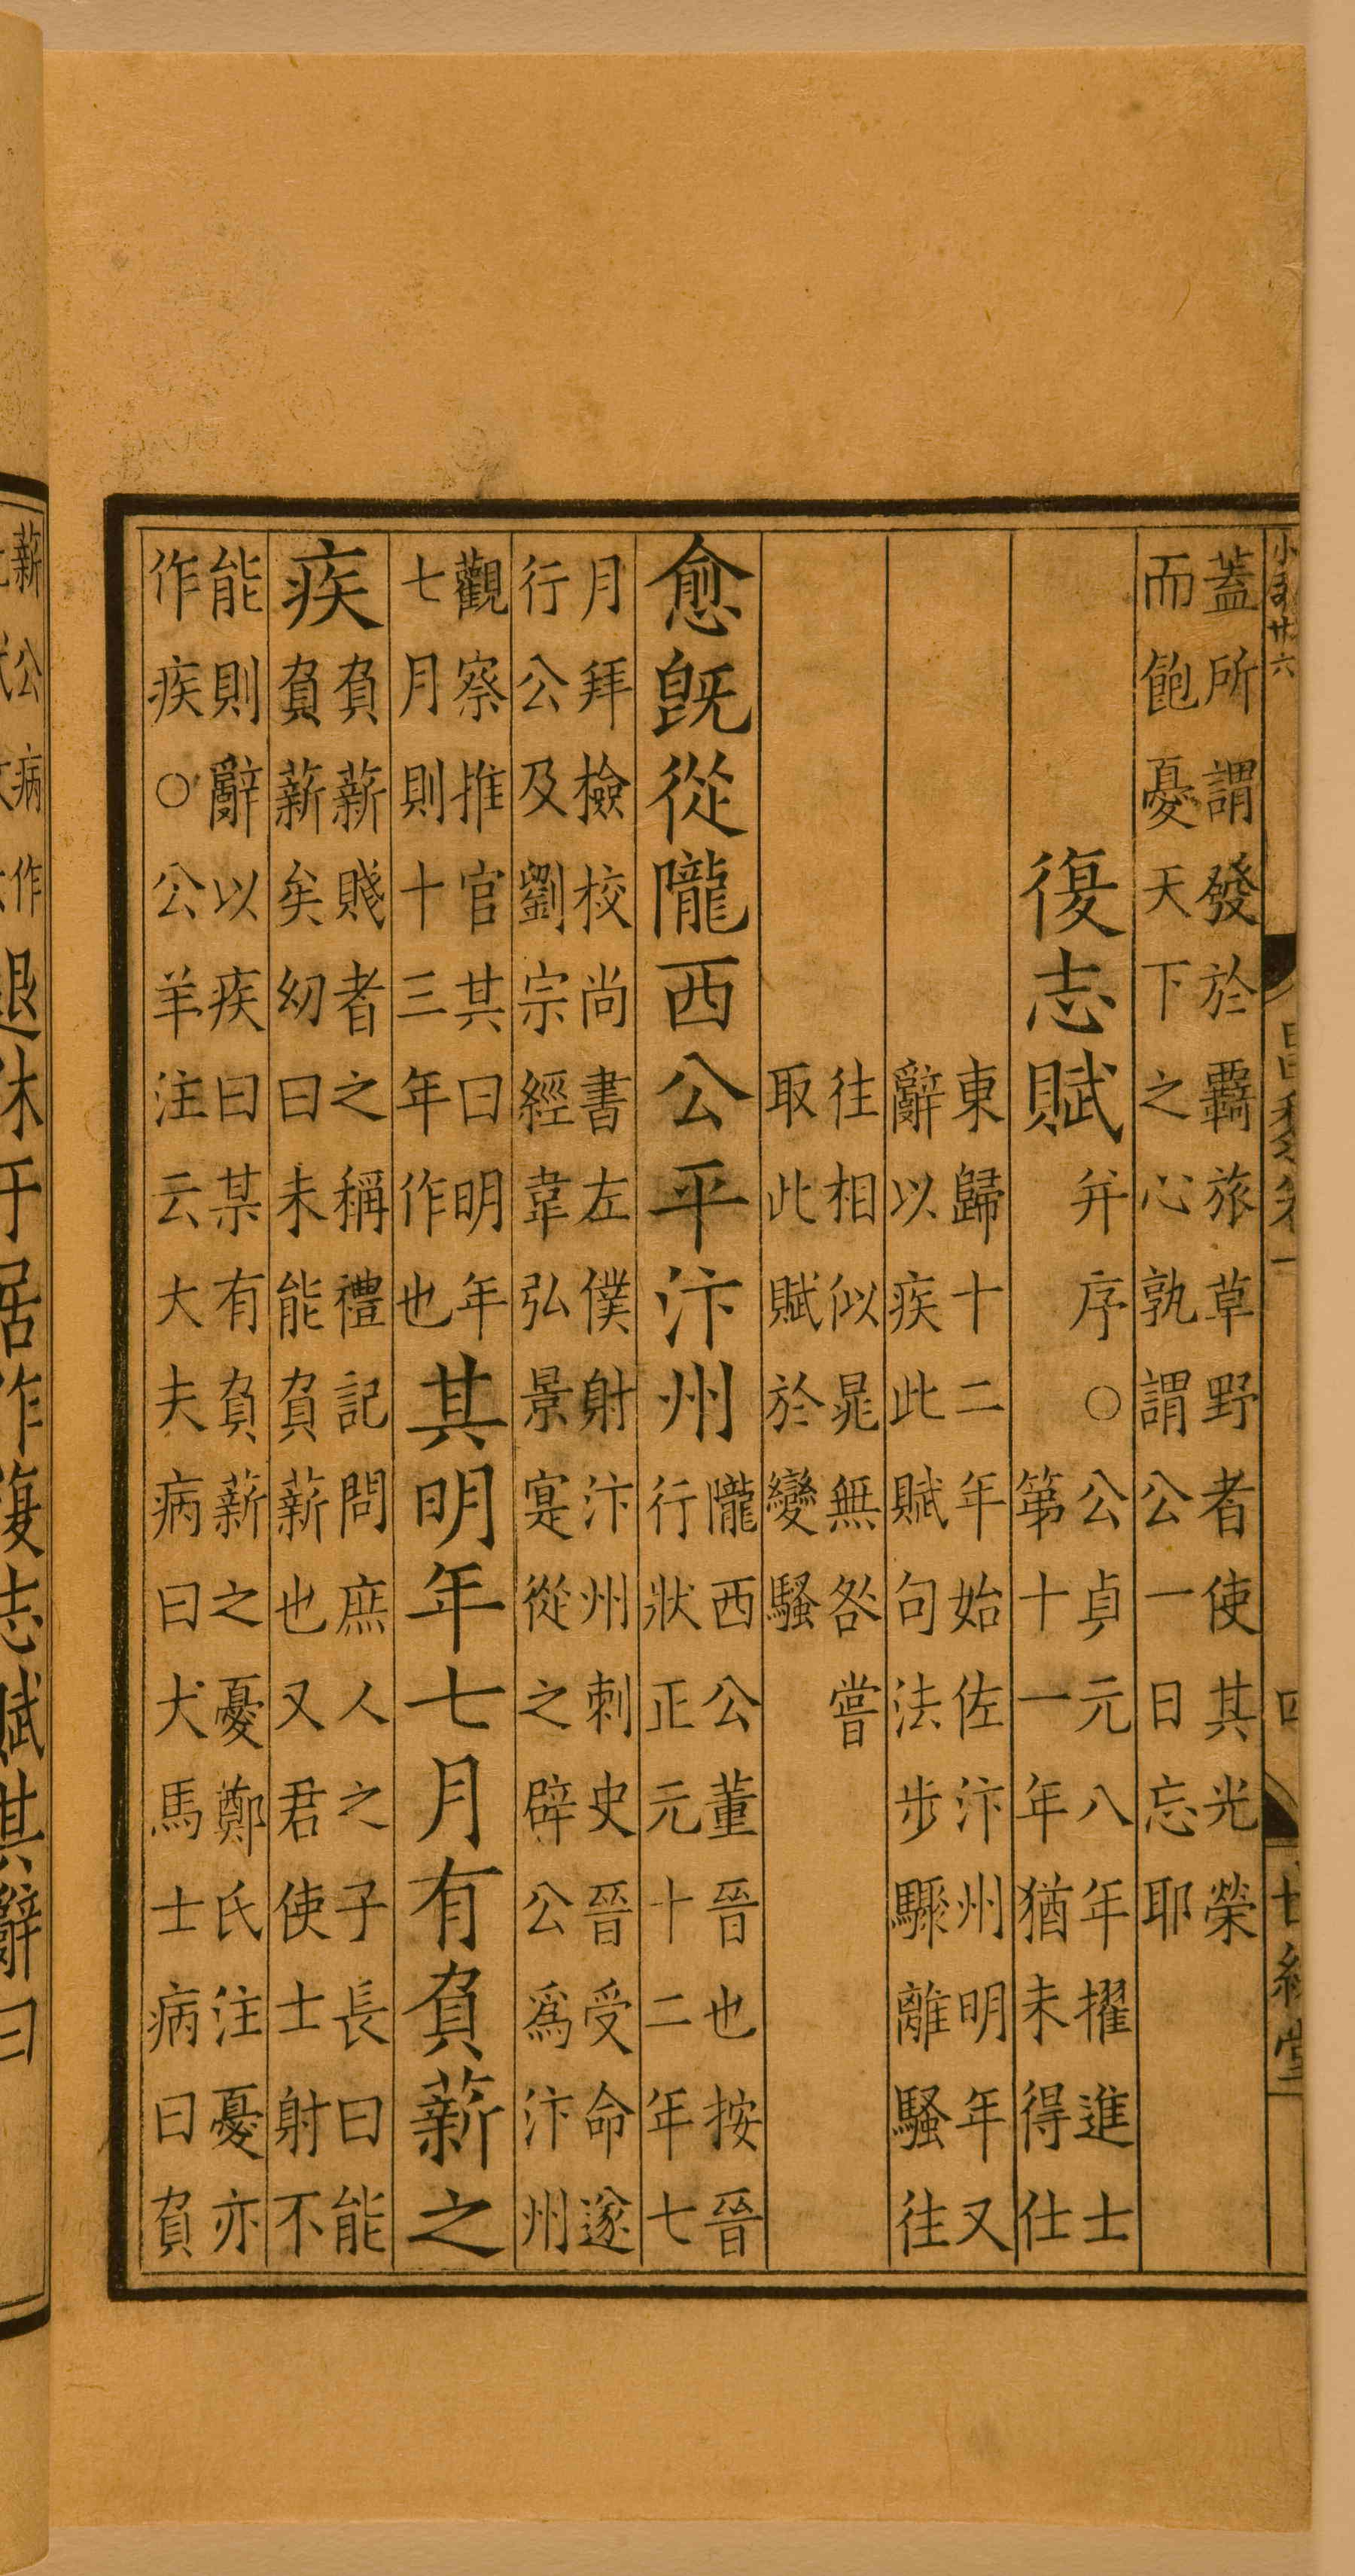 蓋所謂發於羈旅草野者使其光榮
而飽憂天下之心孰謂公一日忘耶
復志賦
并序○公貞元八年擢進士
第十一年猶未得仕
東歸十二年始佐汴州明年又
辭以疾此賦句法步驟離騷徃
徃相似晁無咎嘗
取此賦於變騷
愈旣從隴西公平汴州
隴西公董晉也按晉
行狀正元十二年七
月拜檢校尚書左僕射汴州刺史晉受命遂
行公及劉宗經韋弘景寔從之辟公爲汴州
觀察推官其曰明年
七月則十三年作也
其明年七月有負薪之
疾
負薪賤者之稱禮記問庶人之子長曰能
負薪矣幼曰未能負薪也又君使士射不
能則辭以疾曰某有負薪之憂鄭氏注憂亦
作疾○公羊注云大夫病曰犬馬士病曰負
薪公病作
退休于居作復志賦其辭曰